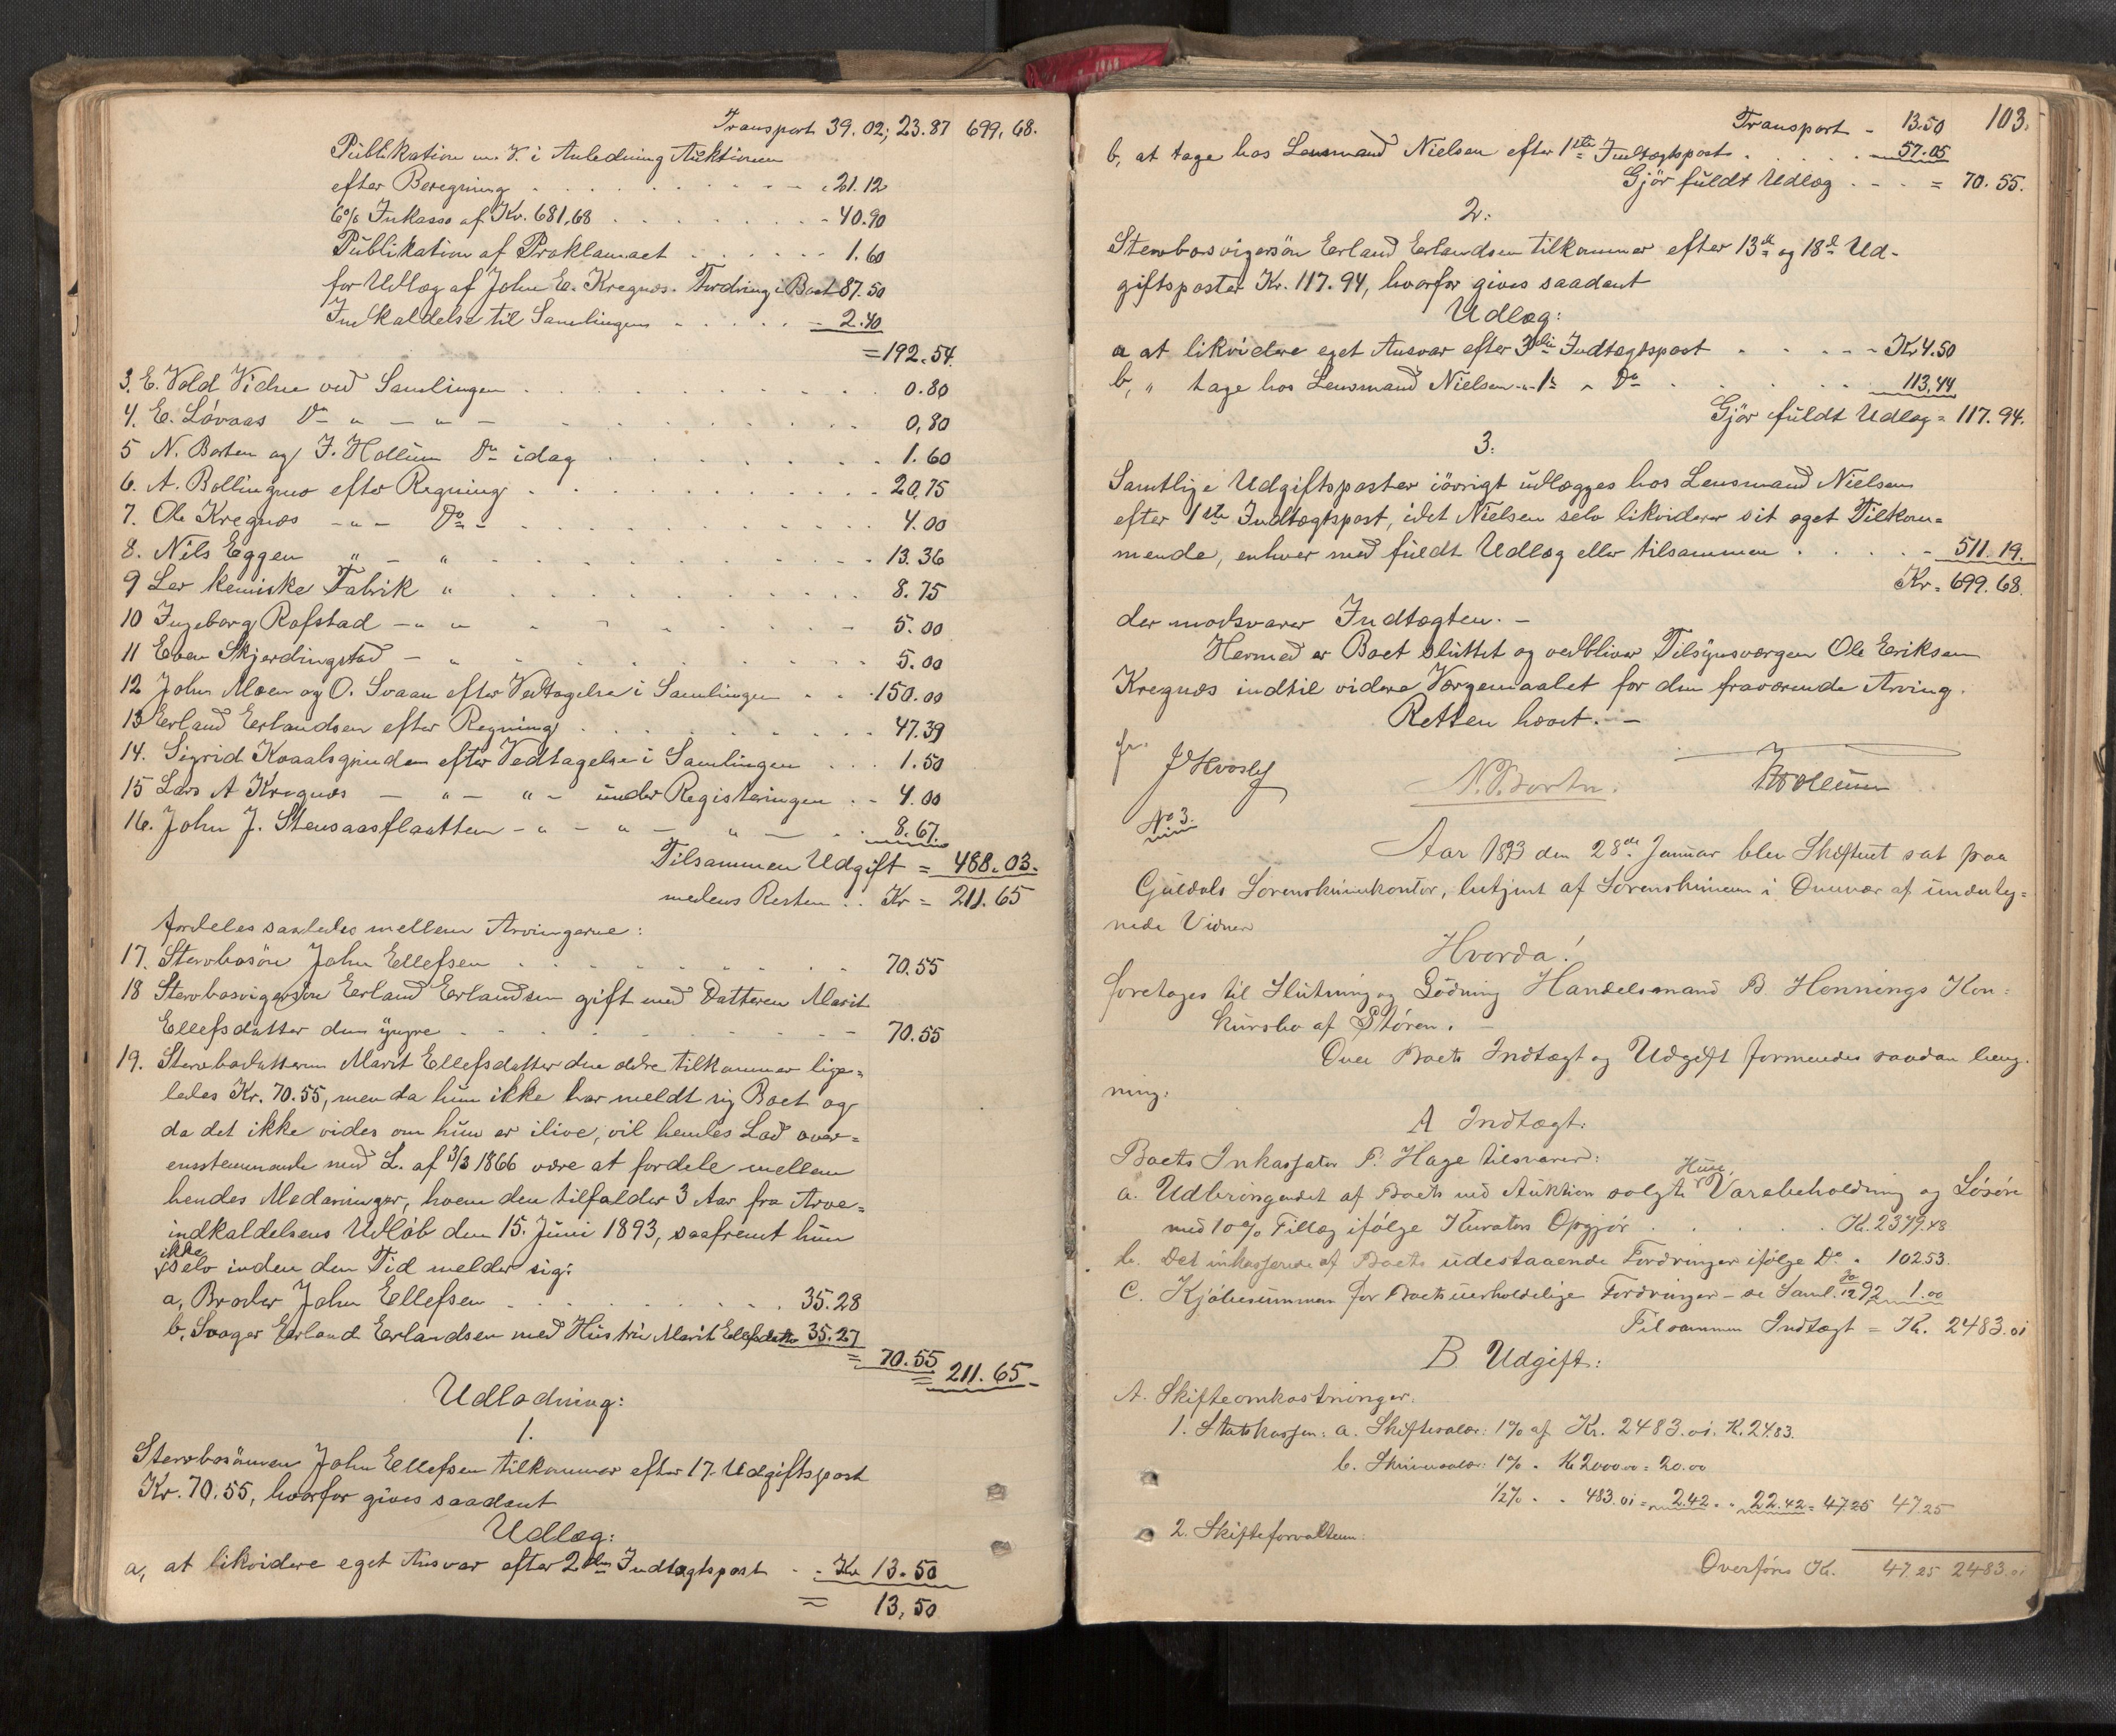 Transport 39.02; 23.87 699.68.
Publikation m. V. i Anledning Auktionen
efter Beregning . . . 21.12
6% Inkasso af Kr. 681,68 . . . 40.90
Publikation af Proklamaet . . . 1.60
for Udlæg af John E. Kregnæs. Fordring i Boet 87.50
Indkaldelse til Samlingen . . . 2.40
= 192.54.
3. E. Vold Vidne ved Samlingen . . . 0.80
4. E. Løvaas Do " — " — . . . 0,80
5 N. Borten og J. Hollum Do idag . . . 1.60
6. A. Bollingmo efter Regning . . . 20.75
7. Ole Kregnæs - " - Do - . . . 4.00
8. Nils Eggen " — " . . . 13.36
9 Ler kemiske Fabrik " . . . 8.75
10 Ingeborg Rofstad — " " . . . 5.00
11 Even Skjerdingstad — " . . . 5.00
12 John Moen og O. Svaan efter Vedtagelse i Samlingen . . . 150.00
13 Erland Erlandsen efter Regning . . . 47.39
14. Sigrid Kvaalsgrinden efter Vedtagelse i Samlingen . . . 1.50
15 Lars A Kregnæs — " — " — under Registeringen . . 4.00
16. John J. Stensaasflaatten - " - " — " — . . 8.67.
Tilsammen Udgift = 488.03.
medens Resten . . Kr = 211.65
fordeles saaledes mellem Arvingerne:
17. Stervbosøn John Ellefsen . . . 70.55
18 Stervbosvigersøn Erland Erlandsen gift med Datteren Marit
Ellefsdatter den yngre . . . 70.55
19. Stervbodatteren Marit Ellefsdatter den ældre tilkommer lige=
ledes Kr. 70.55, men da hun ikke har meldt sig Boet og
da det ikke vides om hun er ilive, vil hendes Lod over=
ensstemmende med L. af 3/3 1866 være at fordele mellem
hendes Medarvinger, hvem den tilfalder 3 Aar fra Arve=
indkaldelsens Udløb den 15. Juni 1893, saafremt hun
ikke
selv inden den Tid melder sig:
a, Broder John Ellefsen . . . 35.28
b. Svoger Erland Erlandsen med Hustru Marit Ellefsdatter 35.27
= 70.55
= 211.65
Udlodning:
1.
Stervbosønnen John Ellefsen tilkommer efter 17. Udgiftspost
Kr. 70.55, hvorfor gives saadant
Udlæg:
a, at likvidere eget Ansvar efter 2den Indtægtspost . . Kr 13.50
= 13,50
Transport - 13.50 103.
b, at tage hos Lensmand Nielsen efter 1ste Indtægtspost . . . 57.05
Gjør fuldt Udlæg . . . = 70.55.
2.
Stervbosvigersøn Erland Erlandsen tilkommer efter 13de og 18de Ud-
giftsposter Kr. 117.94, hvorfor gives saadant
Udlæg:
a at likvidere eget Ansvar efter 3die Indtægtspost . . . Kr 4.50
b, " tage hos Lensmand Nielsen " 1ste " Do . . . 113.44
Gjør fuldt Udlæg = 117.94.
3.
Samtlige Udgiftsposter iøvrigt udlægges hos Lensmand Nielsen
efter 1ste Indtægtspost, idet Nielsen selv likviderer sit eget Tilkom=
mende, enhver med fuldt Udlæg eller tilsammen . . . 511.19.
Kr. 699.68.
der modsvarer Indtægten. —
Hermed er Boet sluttet og vedbliver Tilsynsværgen Ole Eriksen
Kregnæs indtil videre Værgemaalet for den fraværende Arving.
Retten hævet. —
J Hvoslef N. Borten. Hollum
No 3.
Aar 1893 den 28de Januar blev Skifteret sat paa
Guldals Sorenskriverkontor, betjent af Sorenskriveren i Overvær af underteg=
nede Vidner
Hvorda!
foretoges til Slutning og Lodning Handelsmand B. Hennings Kon=
kursbo af Støren. —
Over Boets Indtægt og Udgift formeredes saadan bereg-
ning:
A Indtægt:
Boets Inkassator P. Hage tilsvarer:
Huse,
a. Udbringendet af Boets ved Auktion solgte Varebeholdning og Løsøre
med 10% Tillæg ifølge Kurators Opgjør . . . Kr. 2379.48
b. Det inkasserede af Boets udestaaende Fordringer ifølge Do . 102.53.
C. Kjøbesummen for Boets uerholdelige Fordringer — se Saml. 30/12 92 1.00
Tilsammen Indtægt = Kr. 2483.01
B Udgift:
A. Skifteomkostninger.
1. Statskassen: a. Skiftesalær: 1% af Kr. 2483.01. K. 24.83.
b. Skriversalær: 1% . Kr 2000.00 = 20.00
1/2% . . 483.01 = 2.42 . . 22.42 = 47.25 47.25
2. Skifteforvalteren:
Overføres Kr. 47.25 2483.01